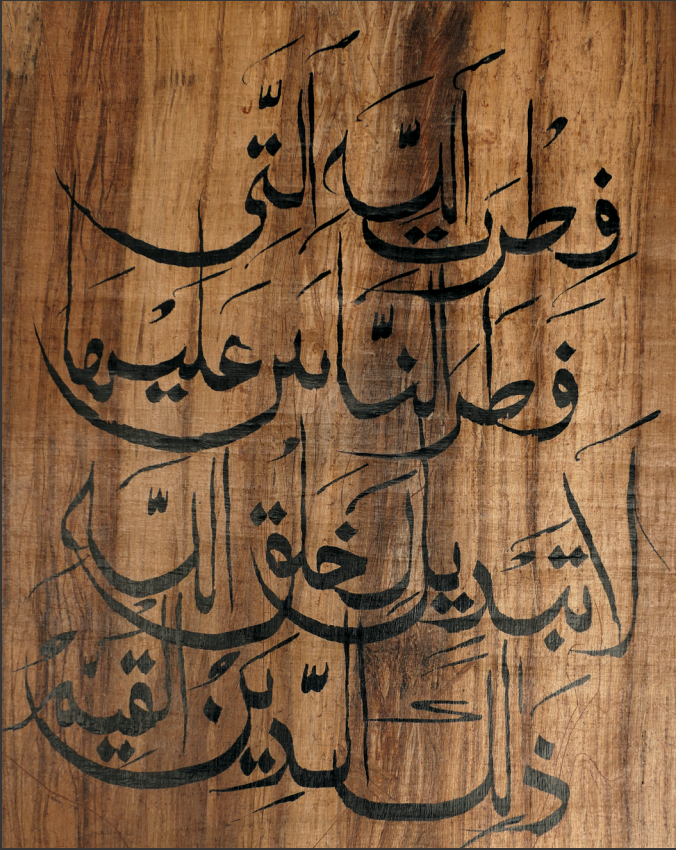 فِطْرَتَ اللّٰهِ الَّتِي
فَطَرَ النَّاسَ عَلَيْهَا
لَا تَبْدِيلَ لِخَلْقِ اللّٰهِ
ذَٰلِكَ الدِّينُ الْقَيِّمُ